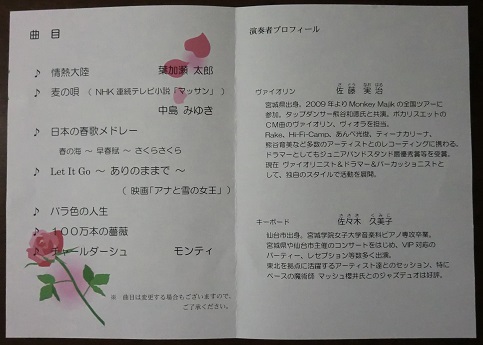 曲 目
♪ 情熱大陸 葉加瀬 太郎
♪ 麦の唄 （ NHK 連続テレビ小説「マッサン」）
中島 みゆき
♪ 日本の春歌メドレー
春の海 ～ 早春賦 ～ さくらさくら
♪ Let It Go ～ ありのままで ～
（ 映画「アナと雪の女王」）
♪ バラ色の人生
♪ １００万本の薔薇
♪ チャールダーシュ モンティ
※ 曲目は変更する場合もございますので、
ご了承ください。
演奏者プロフィール
ヴァイオリン 佐藤 実治
宮城県出身。2009 年より Monkey Majik の全国ツアーに
参加。タップダンサー熊谷和徳氏と共演。ボカリスエットの
CM曲のヴァイオリン、ヴィオラを担当。
Rake、Hi-Fi-Camp、あんべ光俊、ティーナカリーナ、
熊谷育美など多数のアーティストとのレコーディングに携わる。
ドラマーとしてもジュニアバンドスタンド最優秀賞等を受賞。
現在 ヴァイオリニスト＆ドラマー＆パーカッショニストと
して、独自のスタイルで活動を展開。
キーボード 佐々木 久美子
仙台市出身、宮城学院女子大学音楽科ピアノ専攻卒業。
宮城県や仙台市主催のコンサートをはじめ、VIP 対応の
パーティー、レセプション等数多く出演。
東北を拠点に活躍するアーティスト達とのセッション、特に
ベースの魔術師 マッシュ櫻井氏とのジャズデュオは好評。